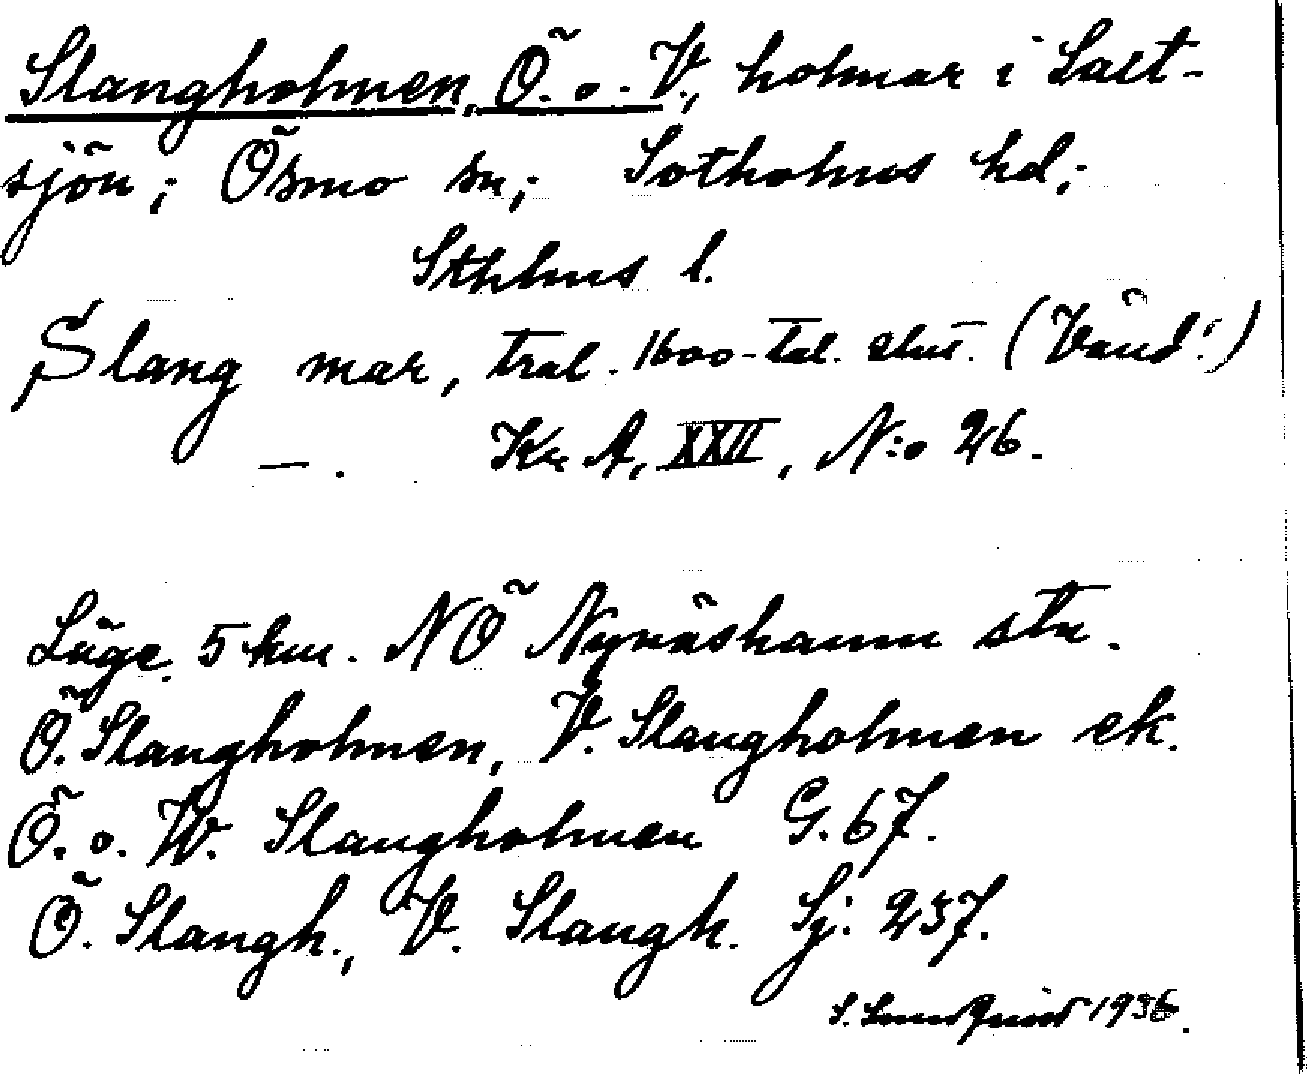 Slangholmen, Ö. o. V., holmar i Salt-
sjön; Ösmo sn; Sotholms hd;
Sthlms l.
Slang mar, tral. 1600-tal. slut. (Vänd!)
— . Kr A, XXII, N:o 26.
Läge 5 km. NÖ Nynäshamn stn.
Ö. Slangholmen, V. Slangholmen ek.
Ö. o. W. Slangholmen G. 67.
Ö. Slangh., V. Slangh. Sj: 237.
S. 1936.